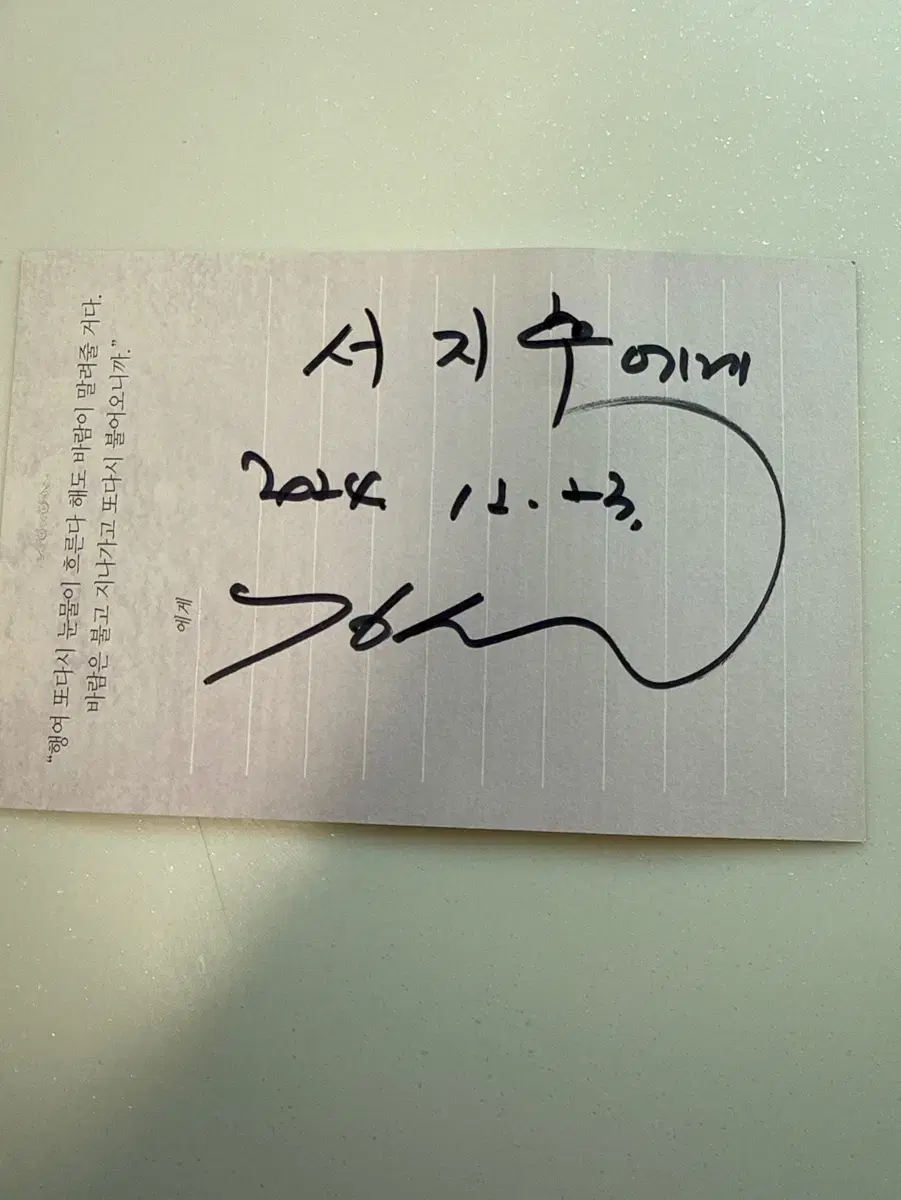 "행여 또다시 눈물이 흐른다 해도 바람이 말려줄 거다.
바람은 불고 지나가고 또다시 불어오니까."
에게
서지수에게
2024 12. 23.